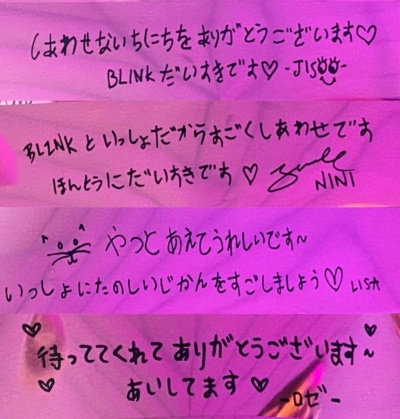 しあわせないちにちをありがとうございます♡
BLINKだいすきです♡ -JISOO-
BLINKといっしょだからすごくしあわせです
ほんとうにだいすきです♡
NINI
やっとあえてうれしいです~
いっしょにたのしいじかんをすごしましょう♡ LISA
待っててくれてありがとうございます~
あいしてます♡ -ロゼ-